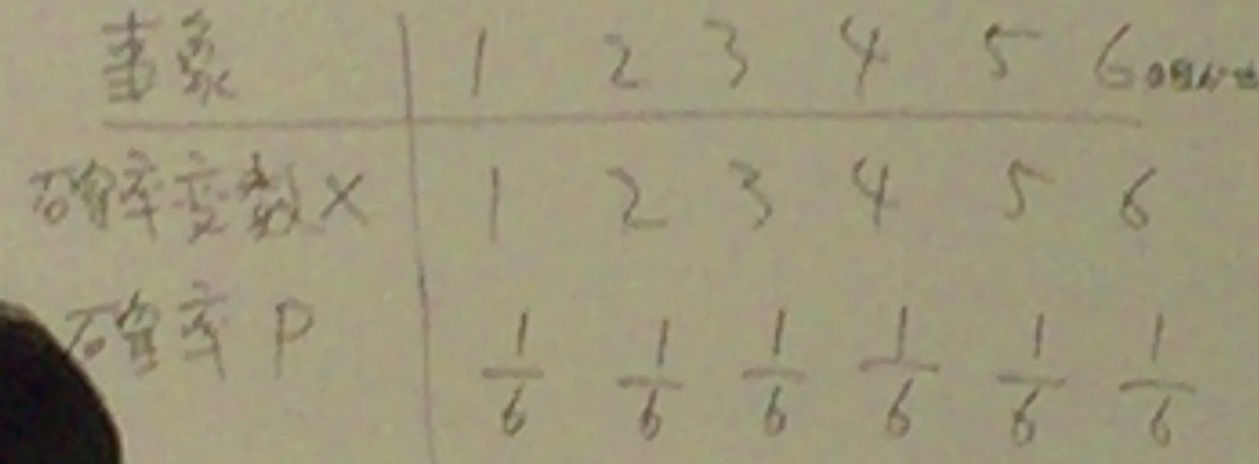 事象 1 2 3 4 5 6の目が出
確率変数X 1 2 3 4 5 6
確率P 1/6 1/6 1/6 1/6 1/6 1/6